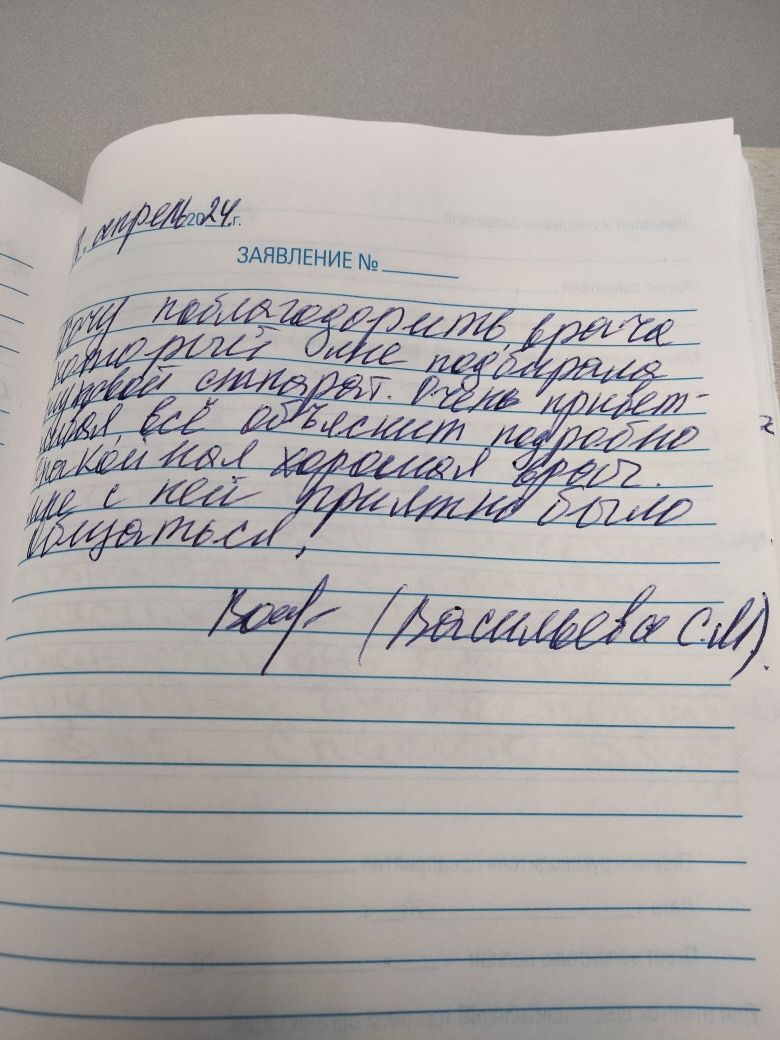 апрель 2024 г.
ЗАЯВЛЕНИЕ №
Хочу поблагодорить врача
который мне подбирала
слуховой аппарат. Очень привет-
ливая, всё объяснит подробно
хорошая врач.
мне с ней приятно было
общаться.
(Васильева С.М).